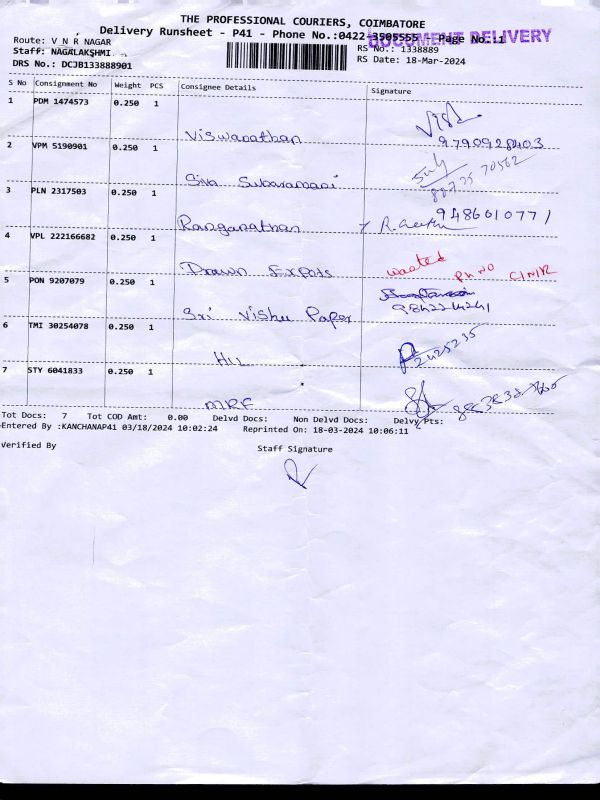 THE PROFESSIONAL COURIERS, COIMBATORE
Delivery Runsheet - P41 - Phone No.:0422-3505555 Page No.:1
DOCUMENT DELIVERY
Route: V N R NAGAR
RS No.: 1338889
Staff: NAGALAKSHMI
RS Date: 18-Mar-2024
DRS No.: DCJB133888901
S No Consignment No Weight PCS Consignee Details Signature
1 PDM 1474573 0.250 1
Viswanathan 9790928403
2 VPM 5190901 0.250 1
Siva Subaramani
3 PLN 2317503 0.250 1
Ranganathan 9486010771
4 VPL 222166682 0.250 1
Drawn Expots wanted Ph NO
5 PON 9207079 0.250 1
Sri Vishu Paper 9842224241
6 TMI 30254078 0.250 1
HLL 2425235
7 STY 6041833 0.250 1
MRF
Tot Docs: 7 Tot COD Amt: 0.00 Delvd Docs: Non Delvd Docs: Delvy Pts:
Entered By :KANCHANAP41 03/18/2024 10:02:24 Reprinted On: 18-03-2024 10:06:11
Verified By
Staff Signature